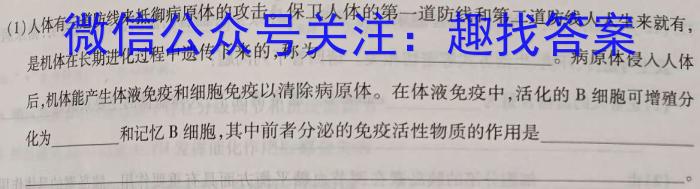 (1)人体有三道防线来抵御病原体的攻击。保卫人体的第一道防线和第二道防线人人生来就有,
微信公众号关注:趣找答案
是机体在长期进化过程中遗传下来的,称为。病原体侵入人体
后,机体能产生体液免疫和细胞免疫以清除病原体。在体液免疫中,活化的 B 细胞可增殖分
化为和记忆 B 细胞,其中前者分泌的免疫活性物质的作用是
。